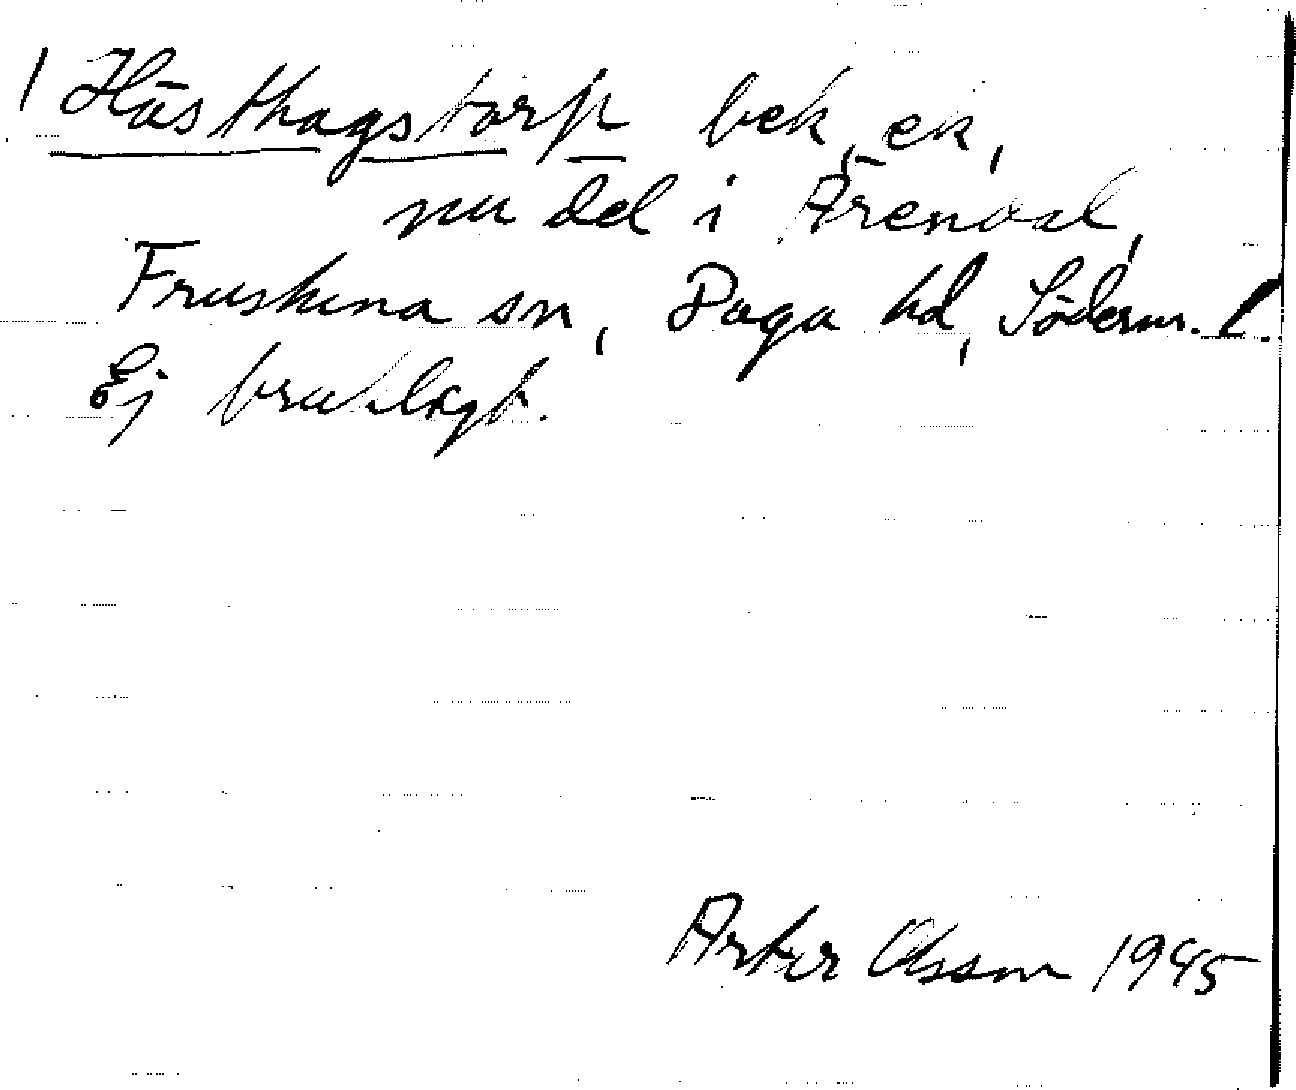 / Hästhagstorp bek. ek,
nu del i Ärendal,
Frustuna sn, Daga hd, Söderm. l.
Ej brukligt.
Artur Olsson 1945